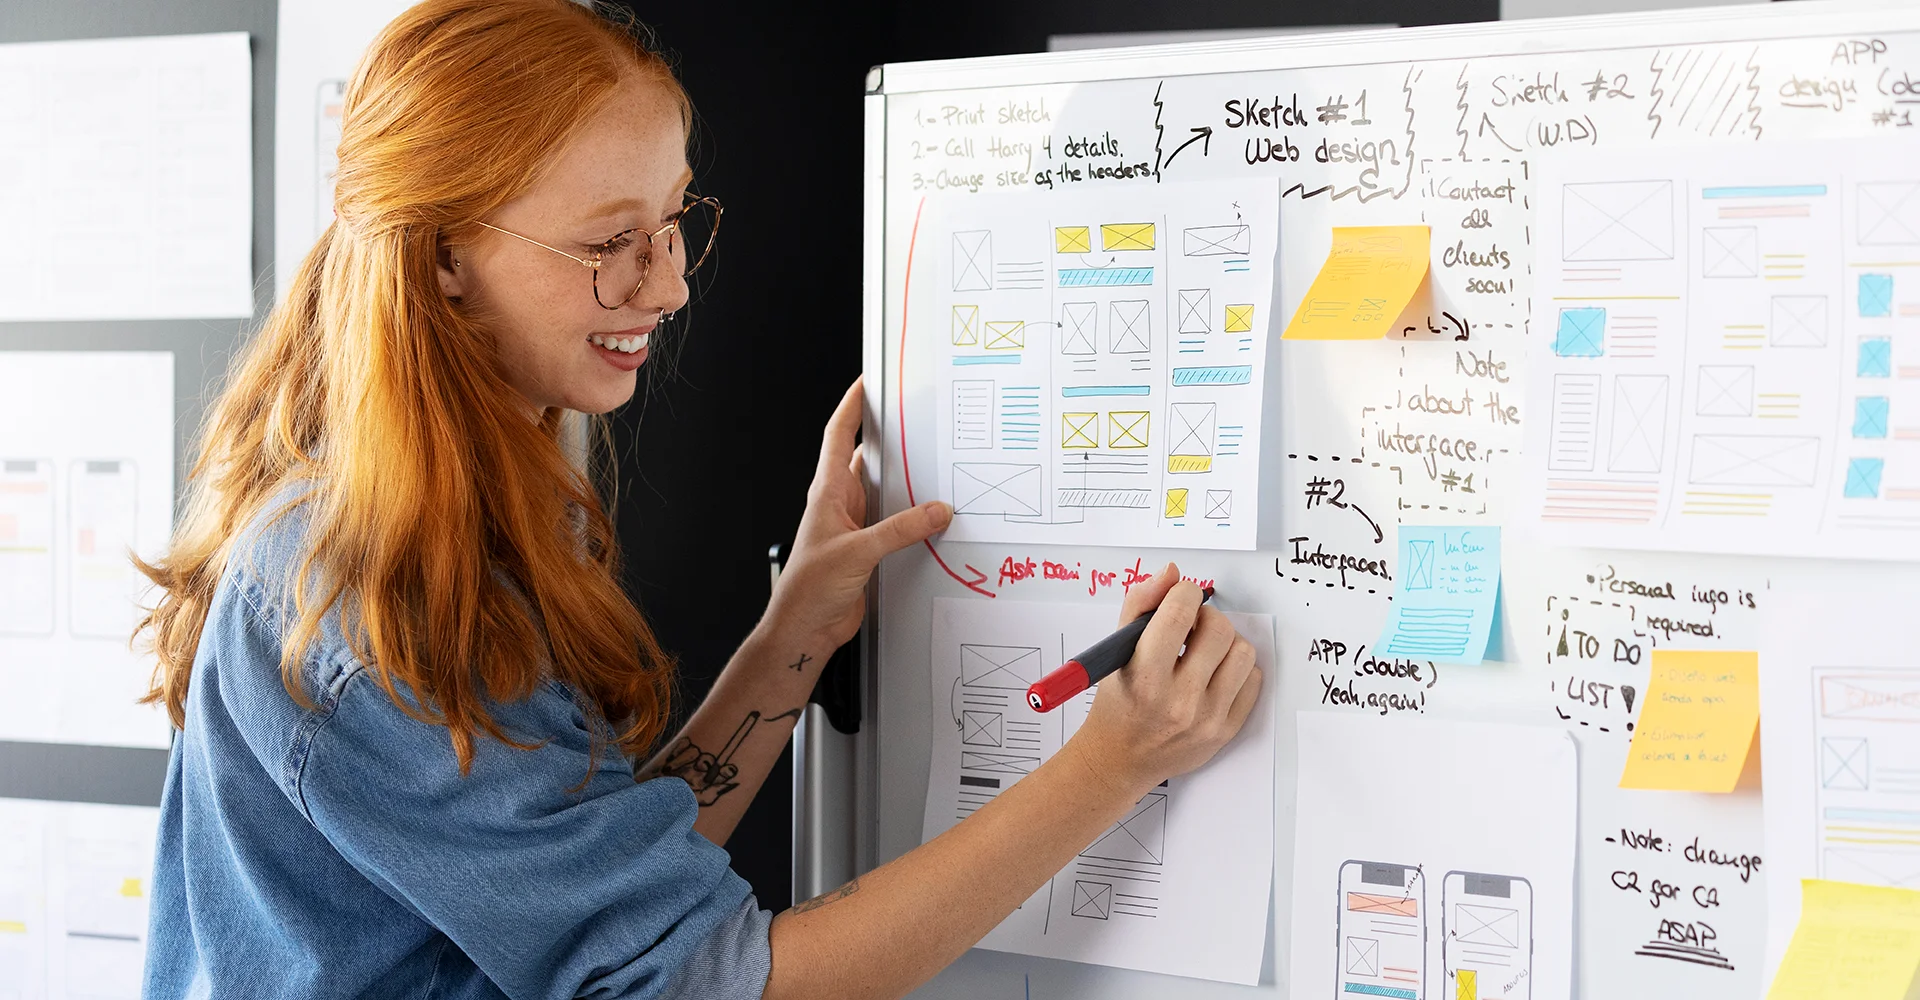 1.- Print sketch
2.- Call Harry 4 details.
3.- Change size of the headers.
Sketch #1
Web design
Sketch #2
(W.D)
APP
design (do
#1
Contact
all
clients
soon!
Note
about the
interface.
#1
#2
Interfaces.
Ask Dani for
APP (double)
Yeah, again!
• Personal info is
required.
TO DO
LIST
- Note: change
C2 for C1
ASAP
About us